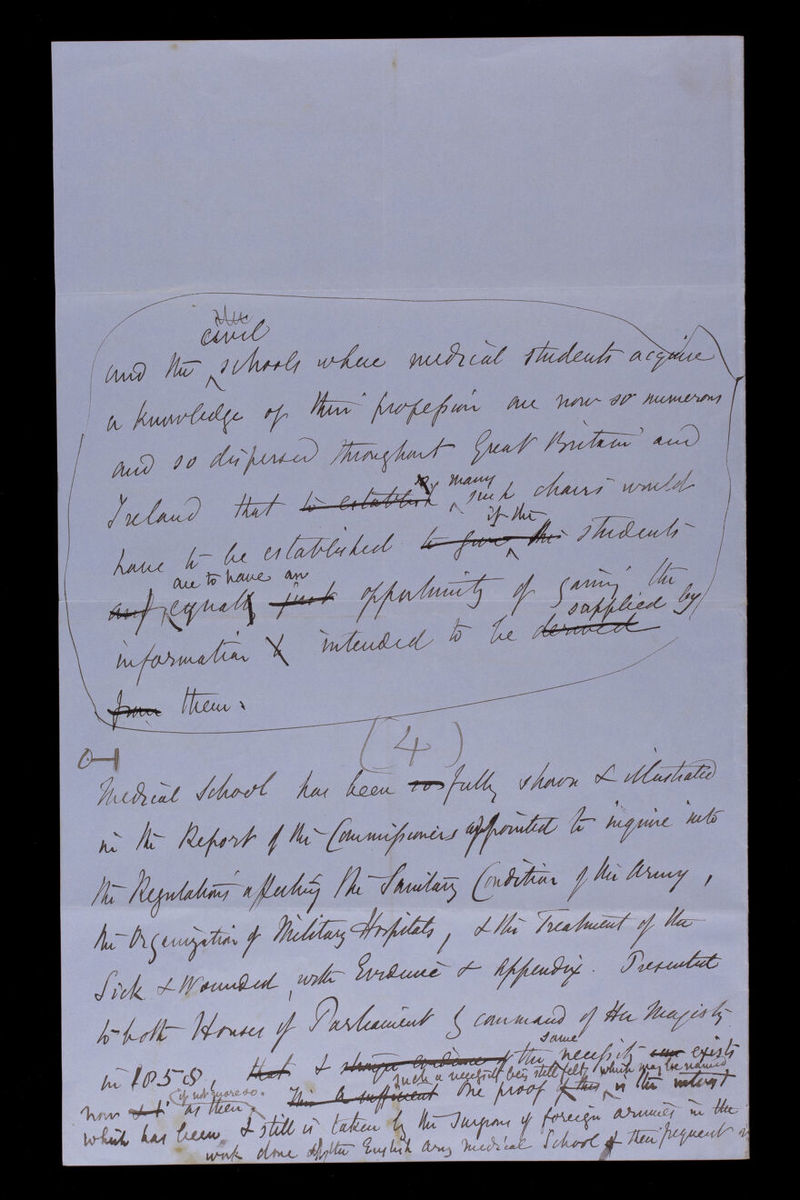 civil
and the schools where medical students acquire
a knowledge of their profession are now so numerous
and so dispersed throughout Great Britain and
Ireland that to establish many such chairs would
have to be established to give this if the students
are to have an
equal just opportunity of gaining the
supplied by
information intended to be derived
from them.
(4)
Medical School has been so fully shown & illustrated
in the Report of the Commissioners appointed to inquire into
the Regulations affecting the Sanitary Condition of the Army,
the Organization of Military Hospitals, & the Treatment of the
Sick & Wounded, with Evidence & Appendix. Presented
to both Houses of Parliament by command of Her Majesty
in 1858, that & the same necessity exists
such a necessity being still felt, which may be named
now if not more so. as then. This a sufficient One proof of this is the interest
which has been & still is taken by the Surgeons of foreign armies in the
work done at the English Army Medical School & their frequent